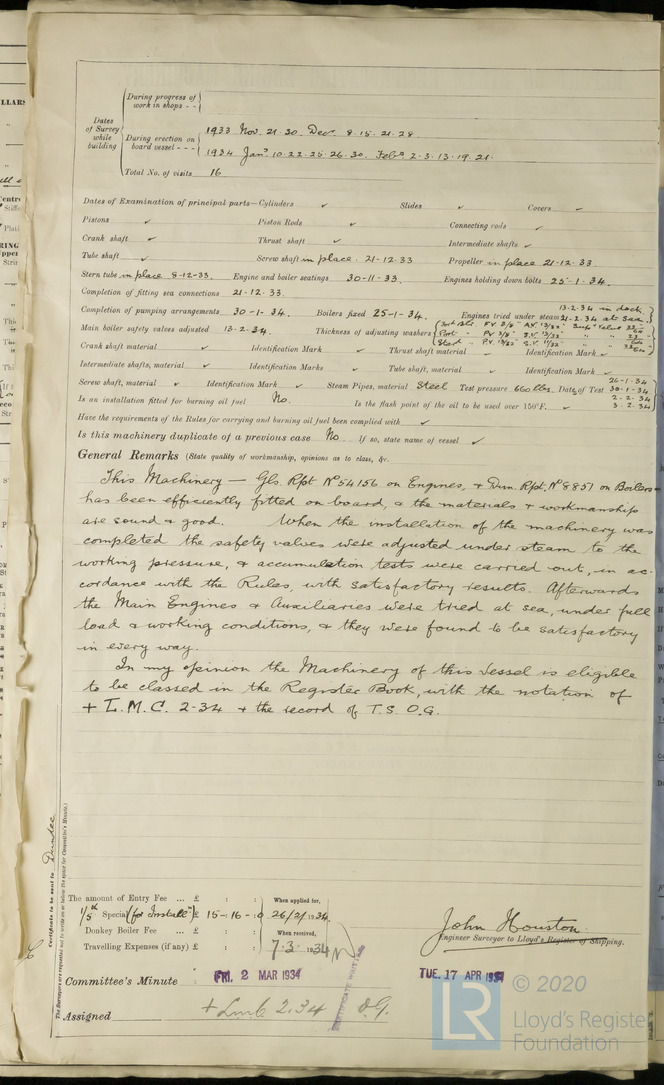 During progress of
work in shops - -
Dates
of Survey
while
building
During erection on
board vessel - - -
1933 Nov. 21. 30. Decr. 8. 15. 21. 28.
1934 Jany. 10. 22. 25. 26. 30. Feby. 2. 3. 13. 19. 21.
Total No. of visits 16
Dates of Examination of principal parts—Cylinders ✓ Slides ✓ Covers ✓
Pistons ✓ Piston Rods ✓ Connecting rods ✓
Crank shaft ✓ Thrust shaft ✓ Intermediate shafts ✓
Tube shaft ✓ Screw shaft in place. 21-12-33 Propeller in place 21-12-33.
Stern tube in place 8-12-33. Engine and boiler seatings 30-11-33. Engines holding down bolts 25-1-34.
Completion of fitting sea connections 21-12-33.
Completion of pumping arrangements 30-1-34. Boilers fixed 25-1-34. Engines tried under steam 13-2-34 in dock 21-2-34 at sea
Main boiler safety valves adjusted 13-2-34. Thickness of adjusting washers
Crank shaft material ✓ Identification Mark ✓ Thrust shaft material ✓ Identification Mark ✓
Intermediate shafts, material ✓ Identification Marks ✓ Tube shaft, material ✓ Identification Mark ✓
Screw shaft, material ✓ Identification Mark ✓ Steam Pipes, material Steel Test pressure 660 lbs. Dates of Test 26-1-34 30-1-34 2-2-34 3-2-34
Is an installation fitted for burning oil fuel No. Is the flash point of the oil to be used over 150°F. ✓
Have the requirements of the Rules for carrying and burning oil fuel been complied with ✓
Is this machinery duplicate of a previous case No. If so, state name of vessel ✓
General Remarks (State quality of workmanship, opinions as to class, &c.
This Machinery — Gls. Rpt No 54156 on Engines, & Dun. Rpt. No 8857 on Boilers—
has been efficiently fitted on board, & the materials & workmanship
are sound & good. When the installation of the machinery was
completed the safety valves were adjusted under steam to the
working pressure, & accumulation tests were carried out, in ac-
cordance with the Rules, with satisfactory results. Afterwards
the Main Engines & Auxiliaries were tried at sea, under full
load & working conditions, & they were found to be satisfactory
in every way.
In my opinion the Machinery of this Vessel is eligible
to be classed in the Register Book, with the notation of
+ L.M.C. 2-34 & the record of T.S. O.G.
Certificate to be sent to Dundee
The Surveyors are requested not to write on or below the space for Committee's Minute.
The amount of Entry Fee ... £ : : When applied for,
1/5th Special (for Install") £ 15-16-0 26/2/1934.
Donkey Boiler Fee ... £ : : When received,
Travelling Expenses (if any) £ : : 7.3.1934
John Houston.
Engineer Surveyor to Lloyd's Register of Shipping.
Committee's Minute FRI. 2 MAR 1934 TUE. 17 APR 1934
Assigned + Lmc 2.34 O.G.
CERTIFICATE WRITTEN
LR © 2020
Lloyd's Registe
Foundation